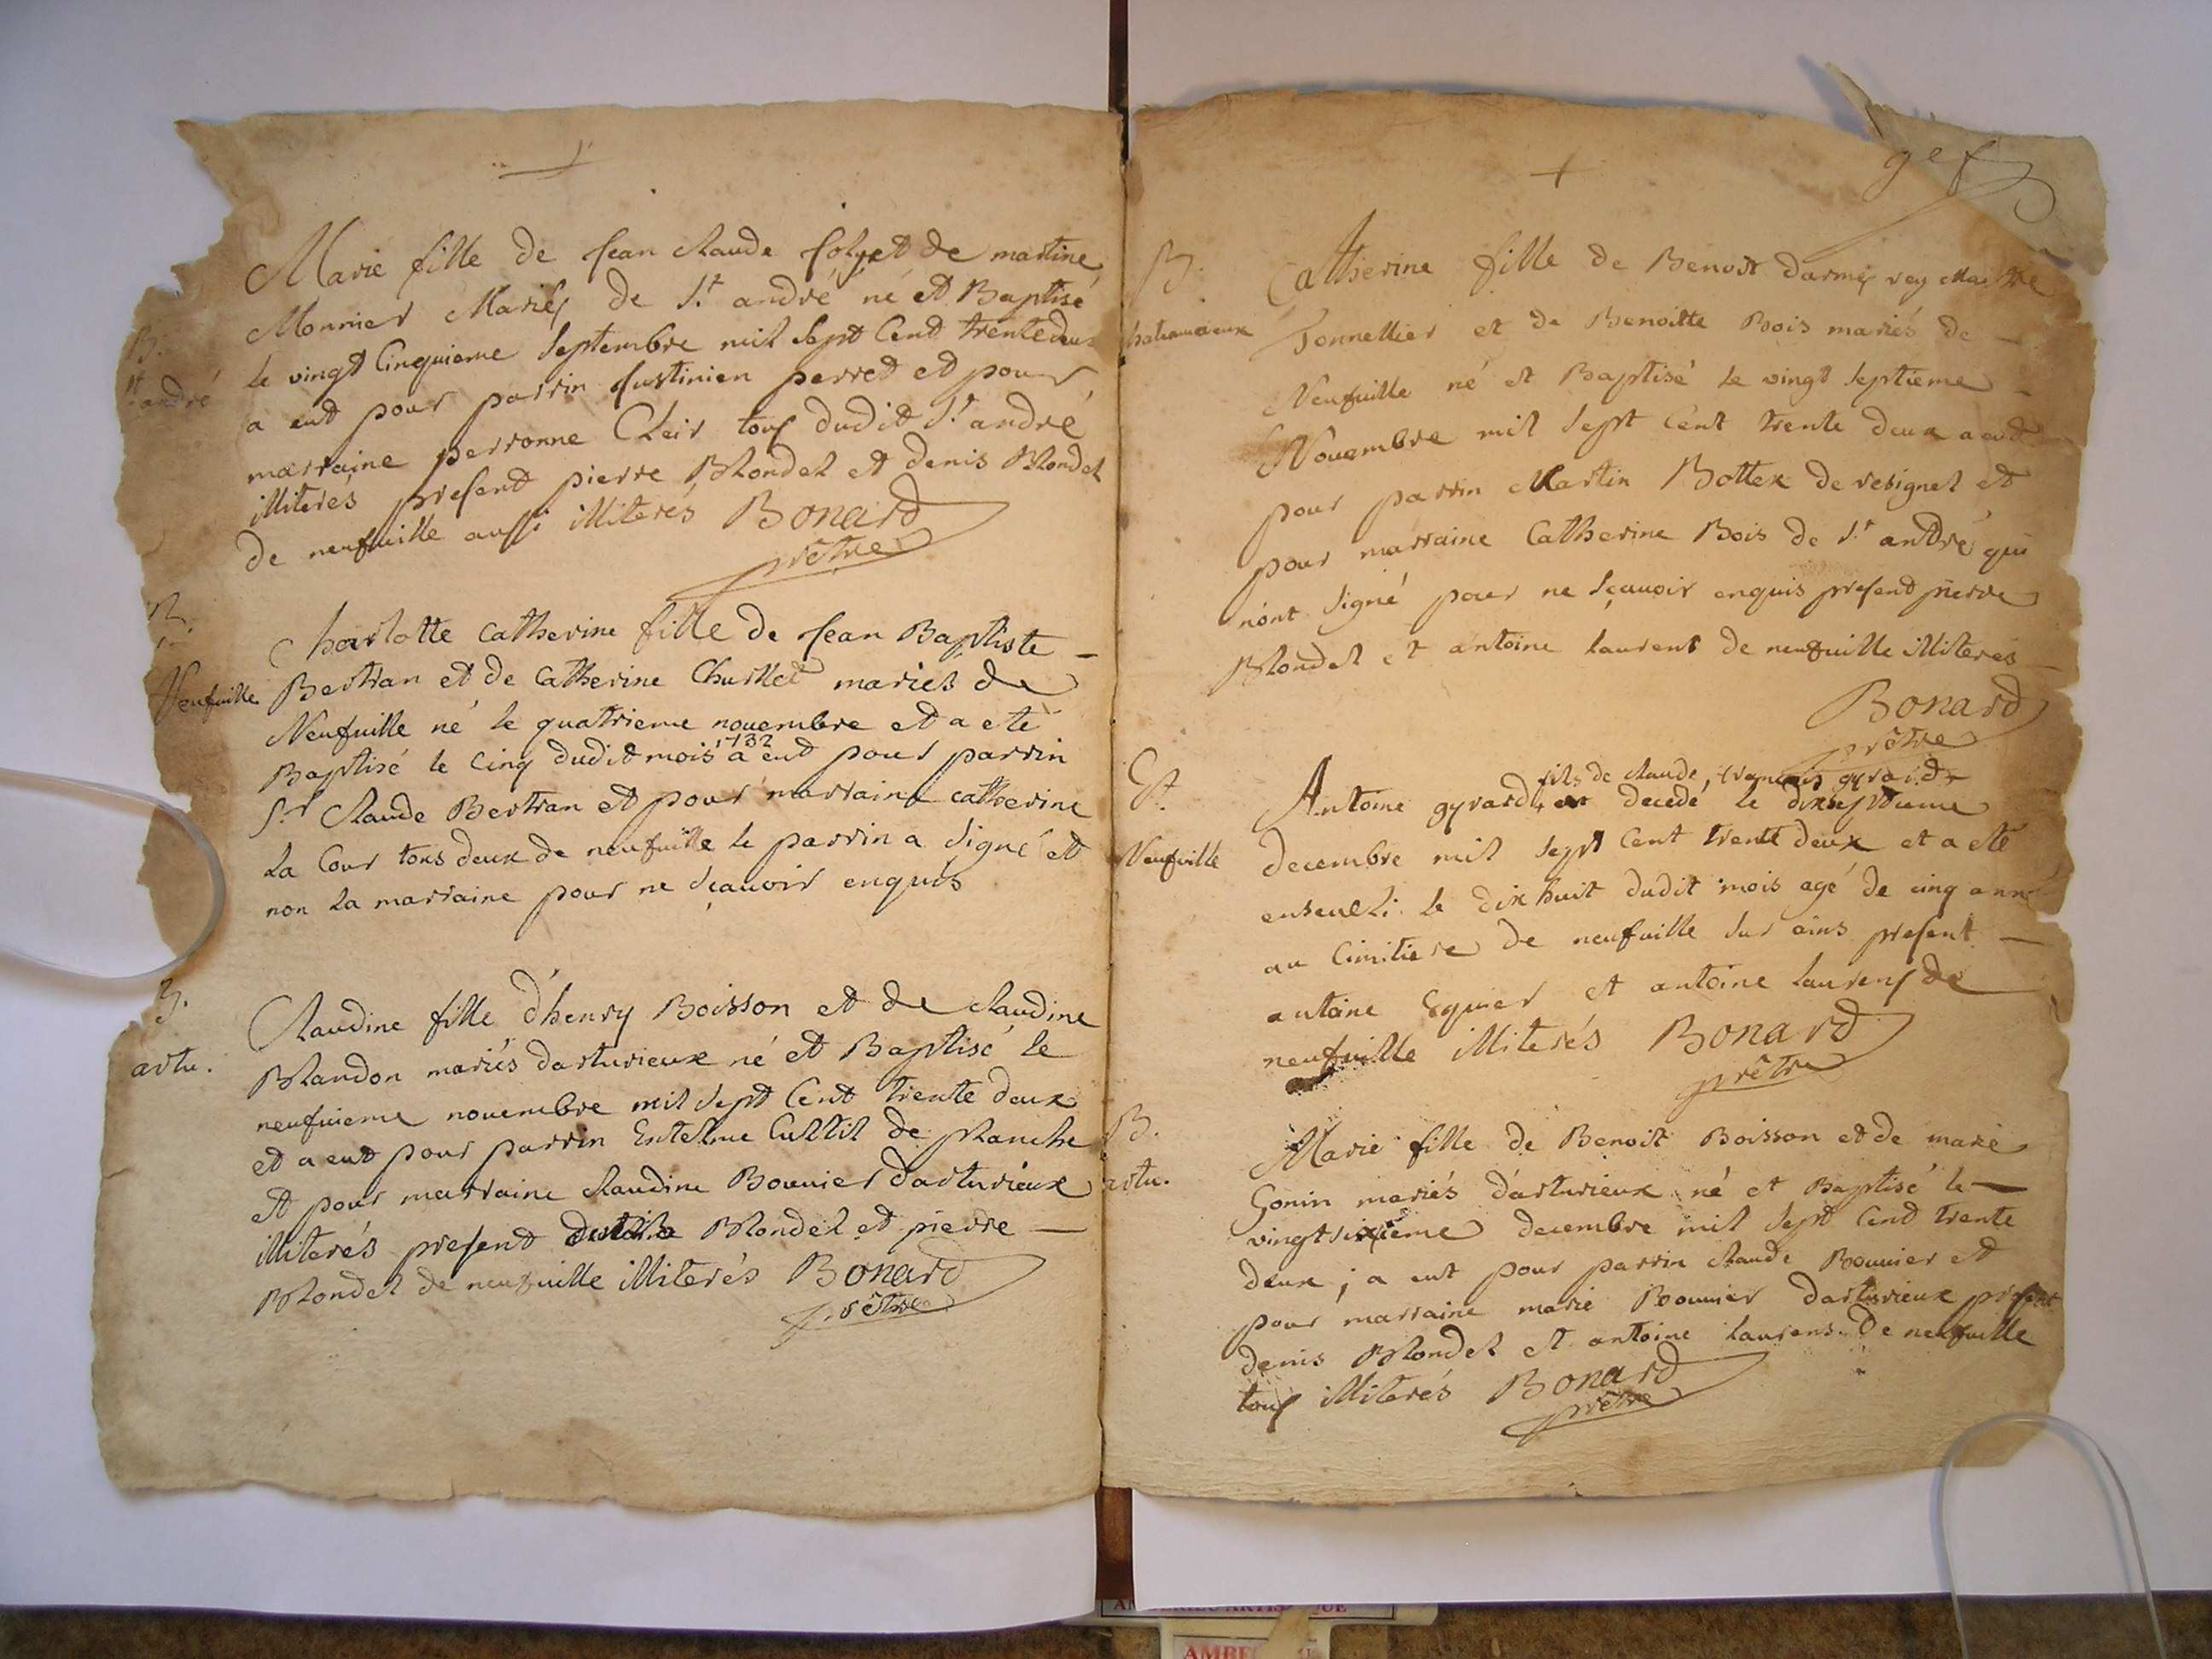 B.
St andré
Marie fille de Jean Claude folyet de martine
Monnier Mariés de St andré né et Baptisé
le vingt Cinquieme Septembre mil Sept Cent trentedeux
a eut pour parrin Justinien perret et pour
marraine perronne Cleir tous dudit St andré
illiterés present pierre Blondel et denis Blondel
de neufuille aussi illiterés Bonard
prêtre
B.
Neufuille
Charlotte Catherine fille de Jean Baptiste
Bertran et de Catherine Churlet mariés de
Neufuille né le quatrieme nouembre et a eté
1732
Baptisé le Cinq dudit mois a eut pour parrin
Sr Claude Bertran et pour marraine catherine
La Cour tous deux de neufuille le parrin a Signé et
non la marraine pour ne Sçauoir enquis
B.
artu.
Claudine fille d'henry Boisson et de Claudine
Blandon mariés darturieux né et Baptisé le
neufuieme nouembre mil Sept Cent trente deux
et a eut pour parrin Entelme Cuttil de planche
et pour marraine Claudine Bouuier darturieux
illiterés present Blondel et pierre
Blondel de neufuille illiterés Bonard
prêtre
B.
hateauuieux
Catherine fille de Benoit darmes rey Maitre
Tonnellier et de Benoitte Bois mariés de
Neufuille né et Baptisé le vingt Septieme
Nouembre mil Sept Cent trente deux a eut
pour parrin Martin Bottex de resignel et
pour marraine Catherine Bois de St andré qui
nont Signé pour ne Sçauoir enquis present pierre
Blondel et antoine laurens de neufuille illiterés
Bonard
prêtre
Et.
Neufville
fils de claude, françois gyrard
Antoine gyrard est decedé le dixseptieme
decembre mil Sept Cent trente deux et a eté
enseueli le dix huit dudit mois agé de cinq ann
au Cimitiere de neufuille Sur ains present
antoine Eguier et antoine laurens de
neufuille illiterés Bonard
prêtre
B.
artu.
Marie fille de Benoit Boisson et de marie
Gonin mariés d'arturieux né et Baptisé le
vingtsixieme decembre mil Sept Cent trente
deux ; a eut pour parrin Claude Bouuier et
pour marraine marie Bouuier darturieux present
denis Blondel et antoine laurens de neufuille
tous illiterés Bonard
prêtre